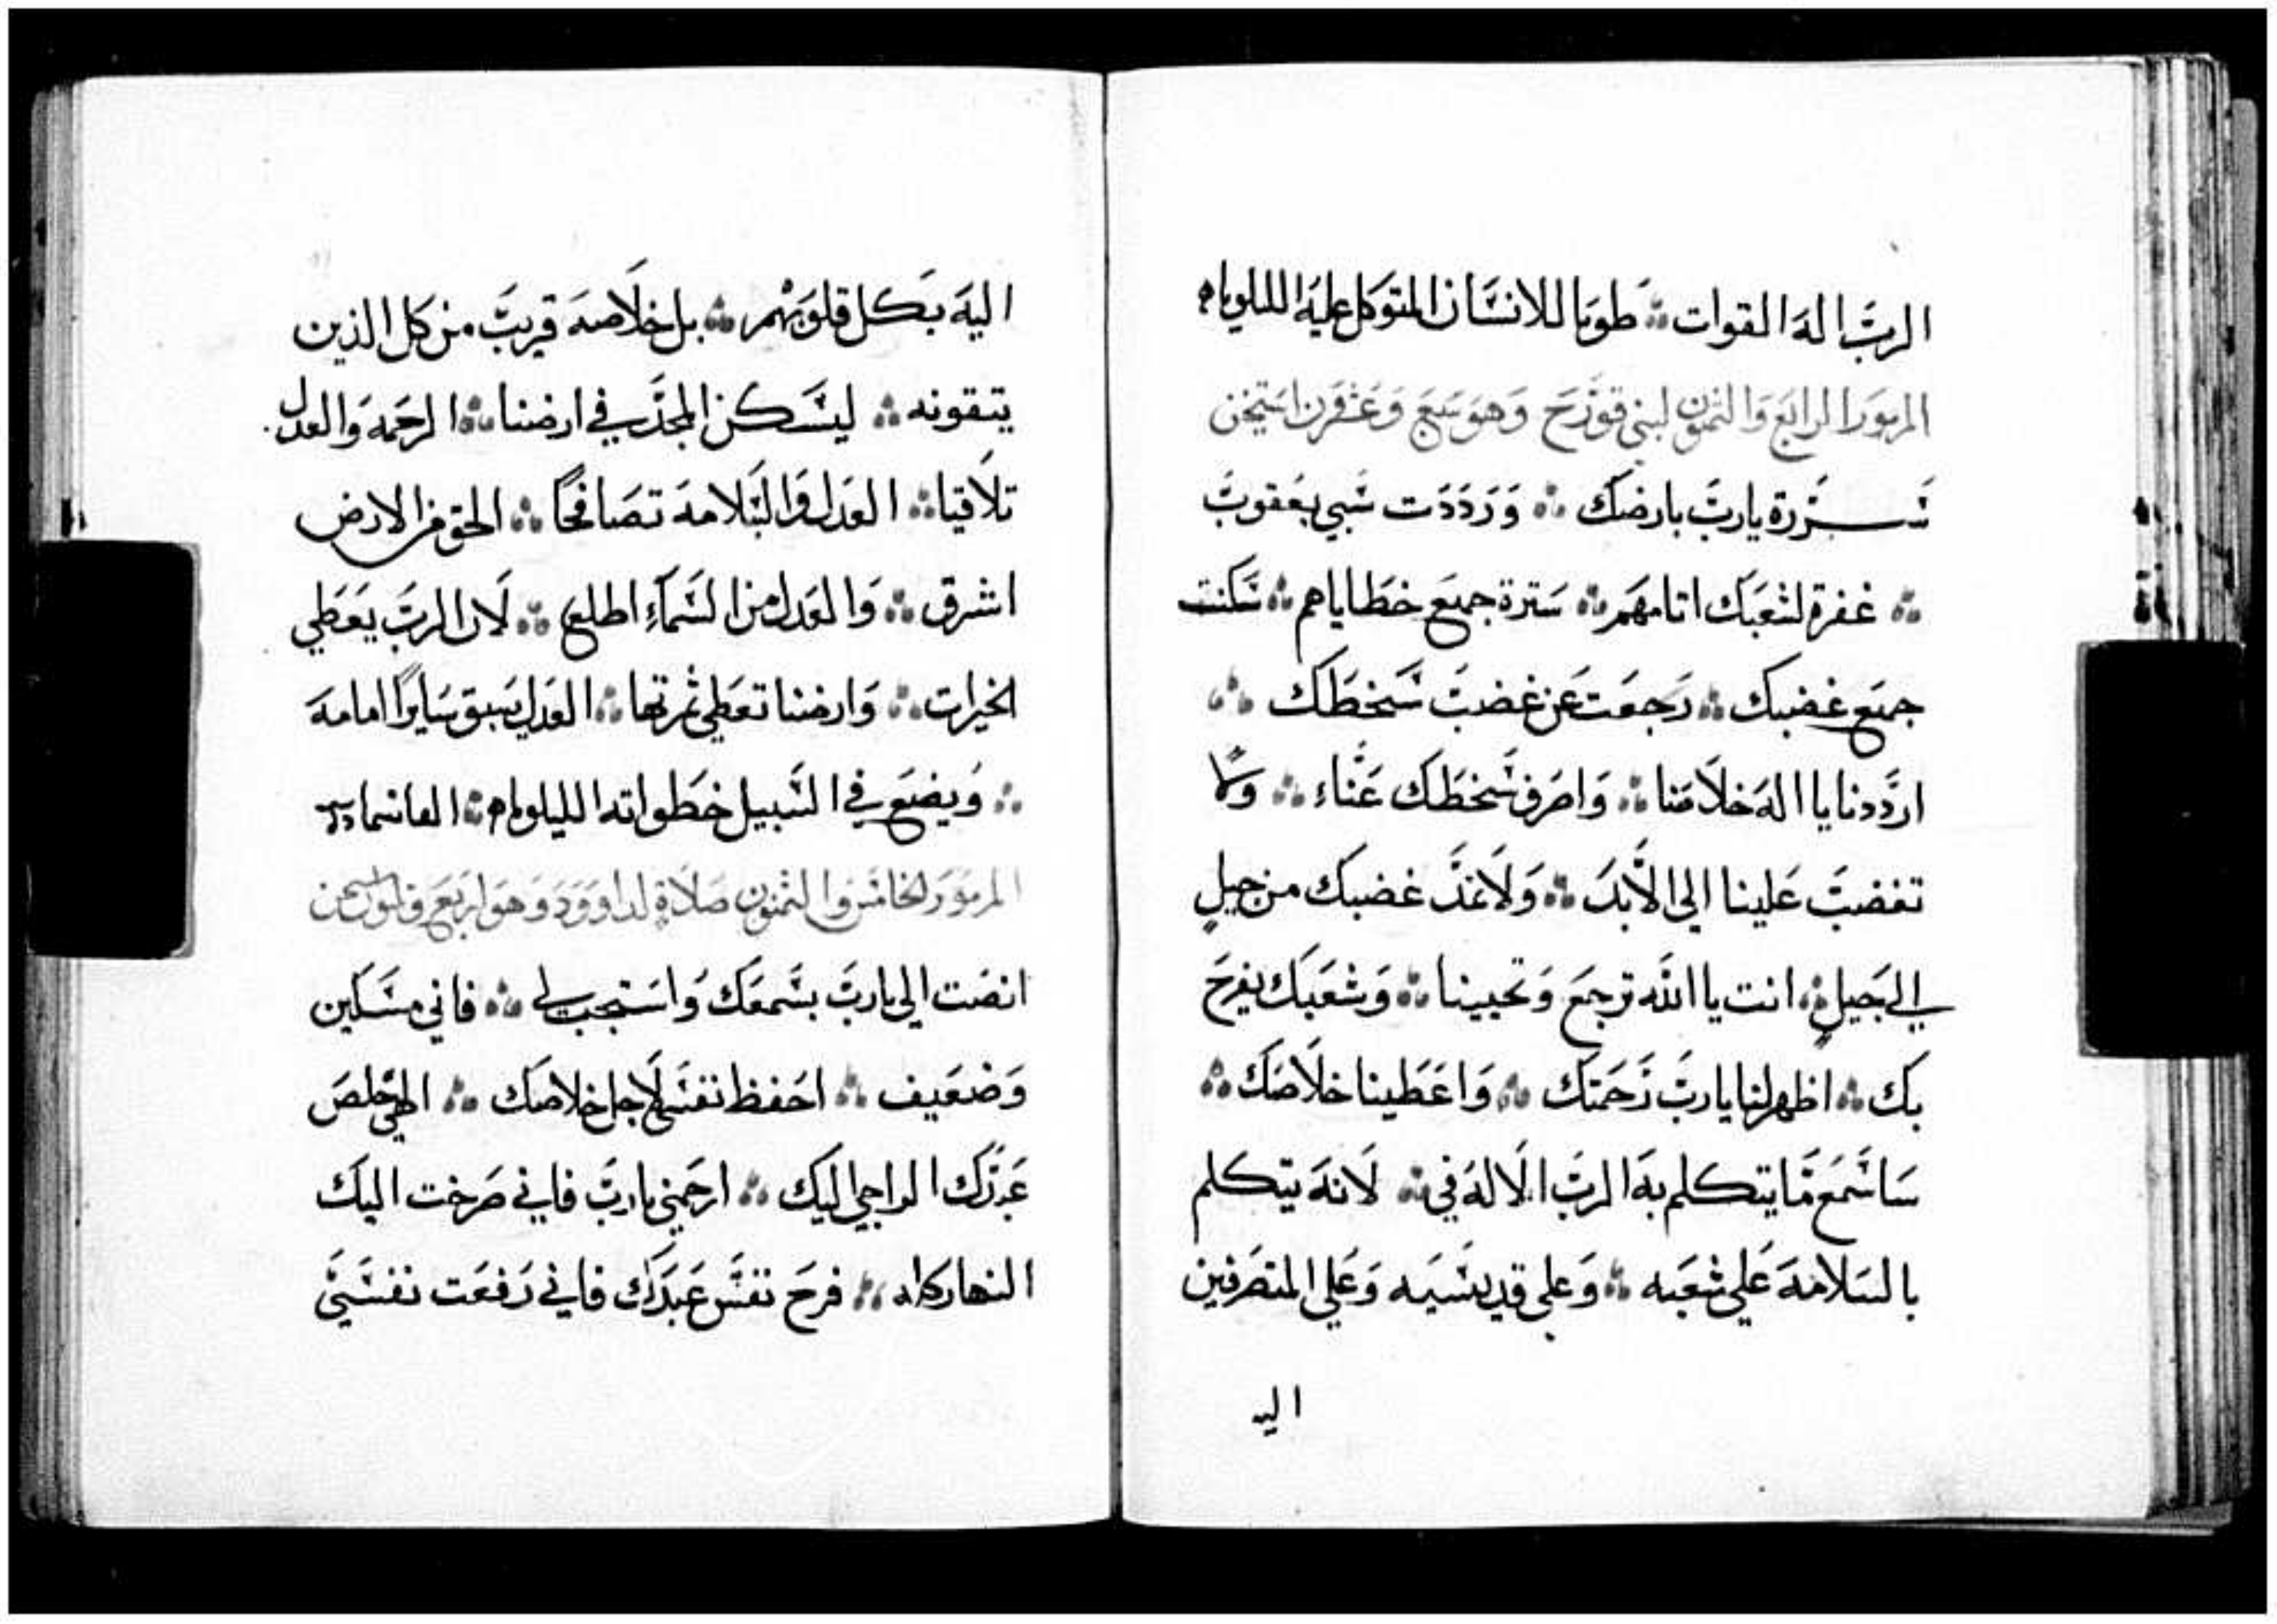 الربّ اله القوات ⁘ طوبا للانسان المتوكل عليه الليلوياه
المزمور الرابع والثمنون لبني قورح وهو سبع وعشرن استيخن
سررة يارب بارضك ⁘ ورددت سبي يعقوب
⁘ غفرة لشعبك اتامهم ⁘ سترة جميع خطاياهم ⁘ سكنت
جميع غضبك ⁘ رجعت عن غضب سخطك ⁘
ارددنا يا اله خلاصنا ⁘ واصرف سخطك عناء ⁘ ولا
تغضب علينا الى الابد ⁘ ولا تمد غضبك من جيلٍ
الي جيلٍ ⁘ انت يا الله ترجع وتحيينا ⁘ وشعبك يفرح
بك ⁘ اظهر لنا يارب رحمتك ⁘ واعطينا خلاصك ⁘
ساسمع ما يتكلم به الرب الاله في ⁘ لانه يتكلم
بالسلامه على شعبه ⁘ وعلى قديسيه وعلي المنصرفين
اليه
اليه بكل قلوبهم ⁘ بل خلاصه قريب من كل الذين
يتقونه ⁘ ليسكن المجد في ارضنا ⁘ الرحمه والعدل
تلاقيا ⁘ العدل والسلامه تصافحا ⁘ الحق من الارض
اشرق ⁘ والعدل من السماء اطلع ⁘ لان الرب يعطي
الخيرات ⁘ وارضنا تعطي ثمرتها ⁘ العدل يسبق سايرًا امامه
⁘ ويضع في السبيل خطواته الليلوياه ⁘
المزمور الخامس والثمنون صلاة لداوود وهو اربع وثلثون
انصت الي يارب بسمعك واستجب لي ⁘ فاني مسكين
وضعيف ⁘ احفظ نفسي لاجل خلاصك ⁘ الهي خلص
عبدك الراجي اليك ⁘ ارحمني يارب فاني صرخت اليك
النهار كله ⁘ فرح نفس عبدك فاني رفعت نفسي